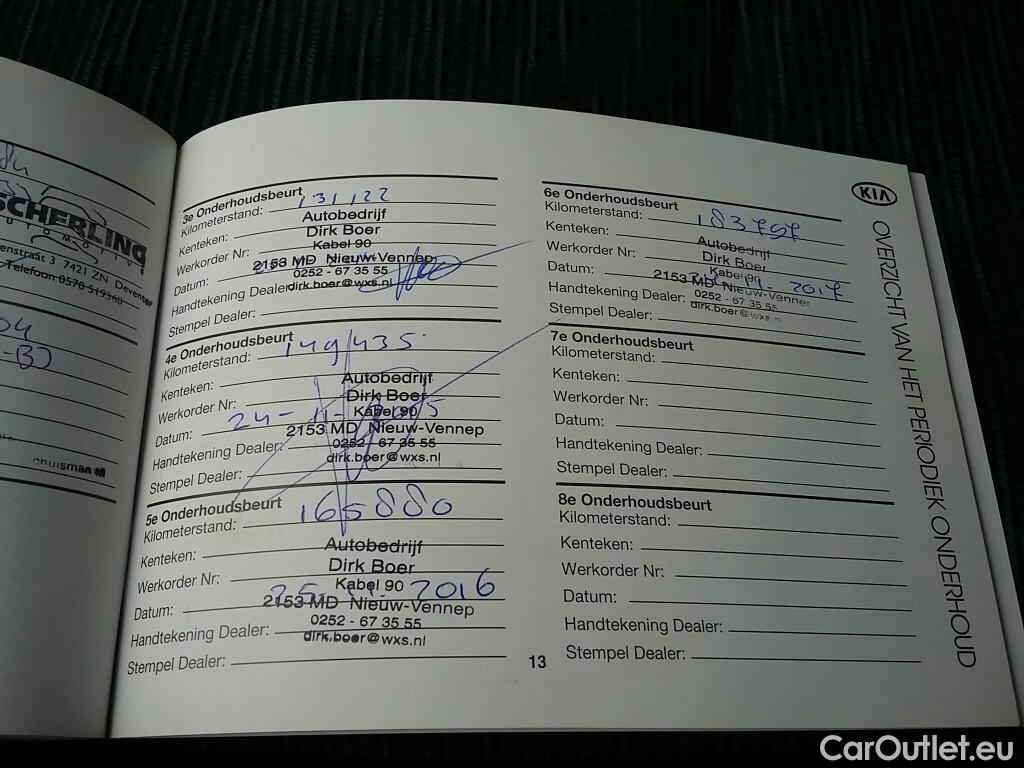 SCHERLING
AUTOMOTIVE
nstraat 3 7421 ZN Deventer
Telefoon 0570-519360
04
chuisman
3e Onderhoudsbeurt
Kilometerstand: 131122
Kenteken:
Werkorder Nr:
Datum:
Handtekening Dealer:
Stempel Dealer:
Autobedrijf
Dirk Boer
Kabel 90
2153 MD Nieuw-Vennep
0252 - 67 35 55
dirk.boer@wxs.nl
4e Onderhoudsbeurt
Kilometerstand: 149435
Kenteken:
Werkorder Nr:
Datum: 24-11-2015
Handtekening Dealer:
Stempel Dealer:
Autobedrijf
Dirk Boer
Kabel 90
2153 MD Nieuw-Vennep
0252 - 67 35 55
dirk.boer@wxs.nl
5e Onderhoudsbeurt
Kilometerstand: 165880
Kenteken:
Werkorder Nr:
Datum: 25-11-2016
Handtekening Dealer:
Stempel Dealer:
Autobedrijf
Dirk Boer
Kabel 90
2153 MD Nieuw-Vennep
0252 - 67 35 55
dirk.boer@wxs.nl
6e Onderhoudsbeurt
Kilometerstand: 183797
Kenteken:
Werkorder Nr:
Datum: 2017
Handtekening Dealer:
Stempel Dealer:
Autobedrijf
Dirk Boer
Kabel 90
2153 MD Nieuw-Vennep
0252 - 67 35 55
dirk.boer@wxs.nl
7e Onderhoudsbeurt
Kilometerstand:
Kenteken:
Werkorder Nr:
Datum:
Handtekening Dealer:
Stempel Dealer:
8e Onderhoudsbeurt
Kilometerstand:
Kenteken:
Werkorder Nr:
Datum:
Handtekening Dealer:
Stempel Dealer:
13
KIA
OVERZICHT VAN HET PERIODIEK ONDERHOUD
CarOutlet.eu